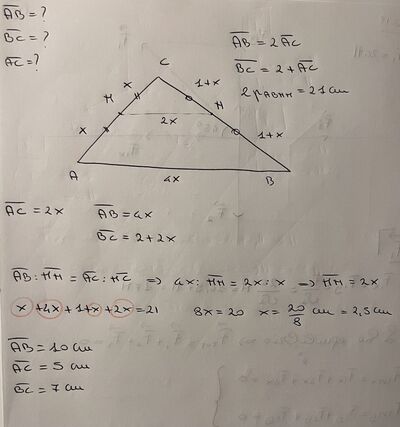 AB = ?
BC = ?
AC = ?
AB = 2AC
BC = 2 + AC
2PABHH = 21 cm
C
x
1+x
H
H
2x
x
1+x
A
B
4x
AC = 2x AB = 4x
BC = 2 + 2x
AB : HH = AC : HC ⇒ 4x : HH = 2x : x ⇒ HH = 2x
x + 4x + 1+x + 2x = 21 8x = 20 x = 20/8 cm = 2,5 cm
AB = 10 cm
AC = 5 cm
BC = 7 cm